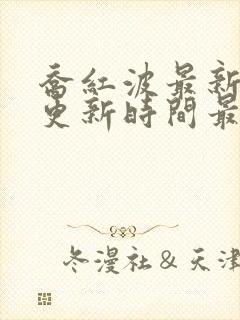 喬紅波最新
更新時間最
冬漫社&天津